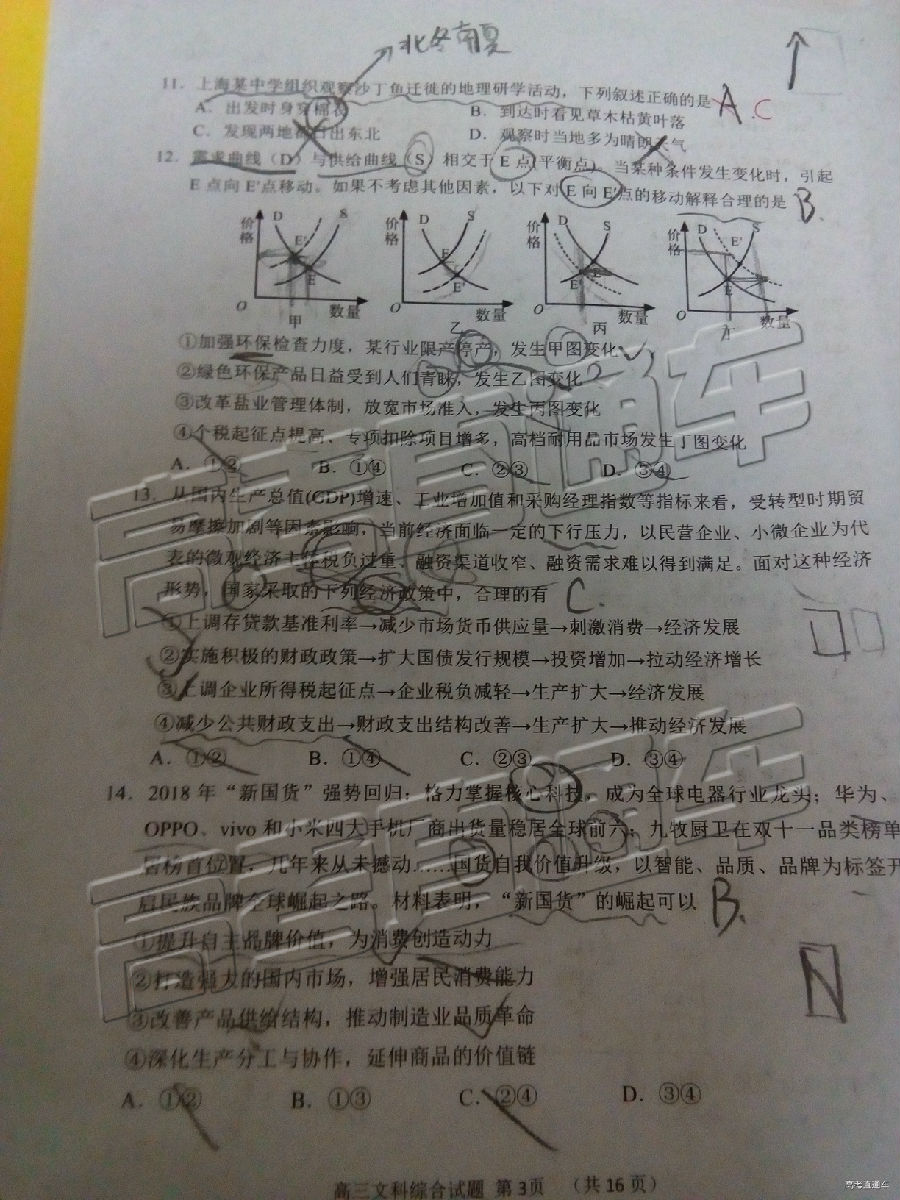 北冬南夏
11. 上海某中学组织观察沙丁鱼迁徙的地理研学活动，下列叙述正确的是 A C
A. 出发时身穿棉衣 B. 到达时看见草木枯黄叶落
C. 发现两地都日出东北 D. 观察时当地多为晴朗天气
12. 需求曲线（D）与供给曲线（S）相交于 E 点(平衡点)，当某种条件发生变化时，引起
E 点向 E'点移动。如果不考虑其他因素，以下对 E 向 E'点的移动解释合理的是 B.
价格 D S E' E O 数量 甲
价格 D S E E' O 数量 乙
价格 D S E E' O 数量 丙
价格 D S E' E O 数量 丁
①加强环保检查力度，某行业限产停产，发生甲图变化
②绿色环保产品日益受到人们青睐，发生乙图变化
③改革盐业管理体制，放宽市场准入，发生丙图变化
④个税起征点提高、专项扣除项目增多，高档耐用品市场发生丁图变化
A. ①② B. ①④ C. ②③ D. ③④
13. 从国内生产总值(GDP)增速、工业增加值和采购经理指数等指标来看，受转型时期贸
易摩擦加剧等因素影响，当前经济面临一定的下行压力，以民营企业、小微企业为代
表的微观经济主体税负过重、融资渠道收窄、融资需求难以得到满足。面对这种经济
形势，国家采取的下列经济政策中，合理的有 C.
①上调存贷款基准利率→减少市场货币供应量→刺激消费→经济发展
②实施积极的财政政策→扩大国债发行规模→投资增加→拉动经济增长
③上调企业所得税起征点→企业税负减轻→生产扩大→经济发展
④减少公共财政支出→财政支出结构改善→生产扩大→推动经济发展
A. ①② B. ①④ C. ②③ D. ③④
14. 2018 年“新国货”强势回归：格力掌握核心科技，成为全球电器行业龙头；华为、
OPPO、vivo 和小米四大手机厂商出货量稳居全球前六；九牧厨卫在双十一品类榜单
榜首位置，几年来从未撼动……国货自我价值升级，以智能、品质、品牌为标签开
启民族品牌全球崛起之路。材料表明，“新国货”的崛起可以 B.
①提升自主品牌价值，为消费创造动力
②打造强大的国内市场，增强居民消费能力
③改善产品供给结构，推动制造业品质革命
④深化生产分工与协作，延伸商品的价值链
A. ①② B. ①③ C. ②④ D. ③④
高三文科综合试题 第 3页 （共 16 页）
高考直通车
高考直通车
高考直通车